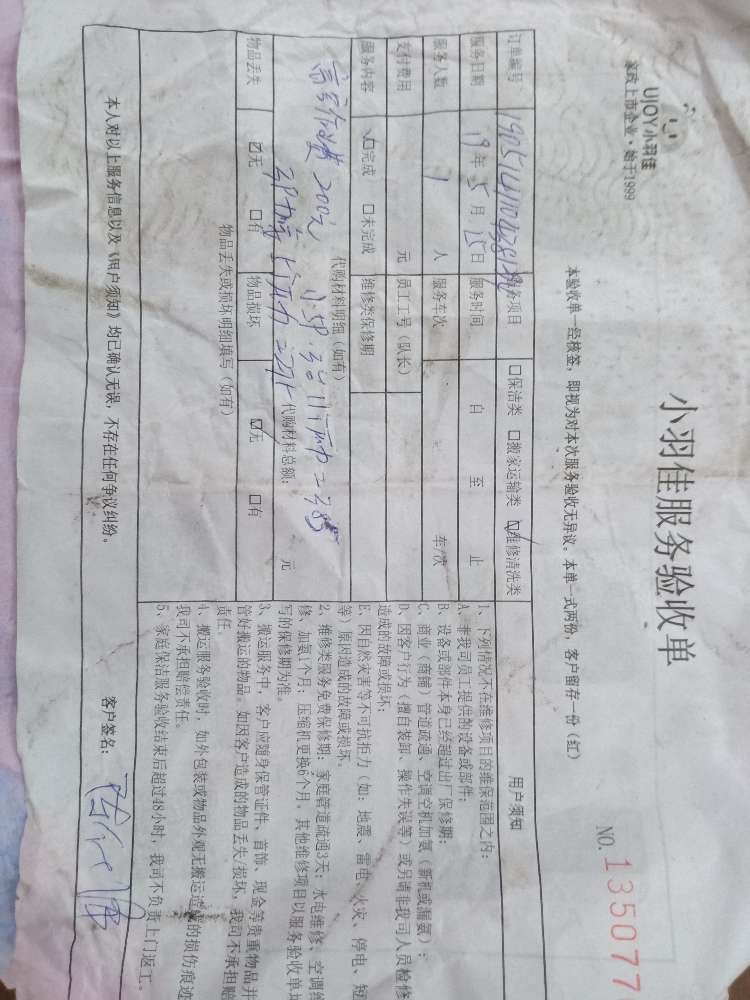 UJOY小羽佳
家政上市企业·始于1999
小羽佳服务验收单
NO. 135077
本验收单一经核签，即视为对本次服务验收无异议。本单一式两份，客户留存一份（红）
订单编号
服务项目 □保洁类 □搬家运输类 ☑维修清洗类
服务日期 19年 5月 15日 服务时间 自 至 止
服务人数 1 人 服务车次 车/次
支付费用 元 员工工号（队长）
服务内容 ☑完成 □未完成 维修类保修期
代购材料明细（如有）
高空作业费 200元
代购材料总额： 元
物品丢失 ☑无 □有 物品损坏 ☑无 □有
物品丢失或损坏明细填写（如有）
用户须知
1、下列情况不在维修项目的维保范围之内：
A、非我司员工提供的设备或部件；
B、设备或部件本身已经超过出厂保修期；
C、商业（商铺）管道疏通、空调空机加氨（新机或漏氨）；
D、因客户行为（擅自装卸、操作失误等）或另请非我司人员检修
造成的故障或损坏；
E、因自然灾害等不可抗拒力（如：地震、雷电、火灾、停电、短
等）原因造成的故障或损坏。
2、维修类服务免费保修期：家庭管道疏通3天；水电维修、空调维
修、加氨1个月；压缩机更换6个月，其他维修项目以服务验收单填
写的保修期为准。
3、搬运服务中，客户应随身保管证件、首饰、现金等贵重物品并
管好搬运的物品。如因客户造成的物品丢失/损坏，我司不承担赔
责任。
4、搬运服务验收时，如外包装或物品外观无搬运造成的损伤痕迹
我司不承担赔偿责任。
5、家庭保洁服务验收结束后超过48小时，我司不负责上门返工。
本人对以上服务信息以及《用户须知》均已确认无误，不存在任何争议纠纷。
客户签名：